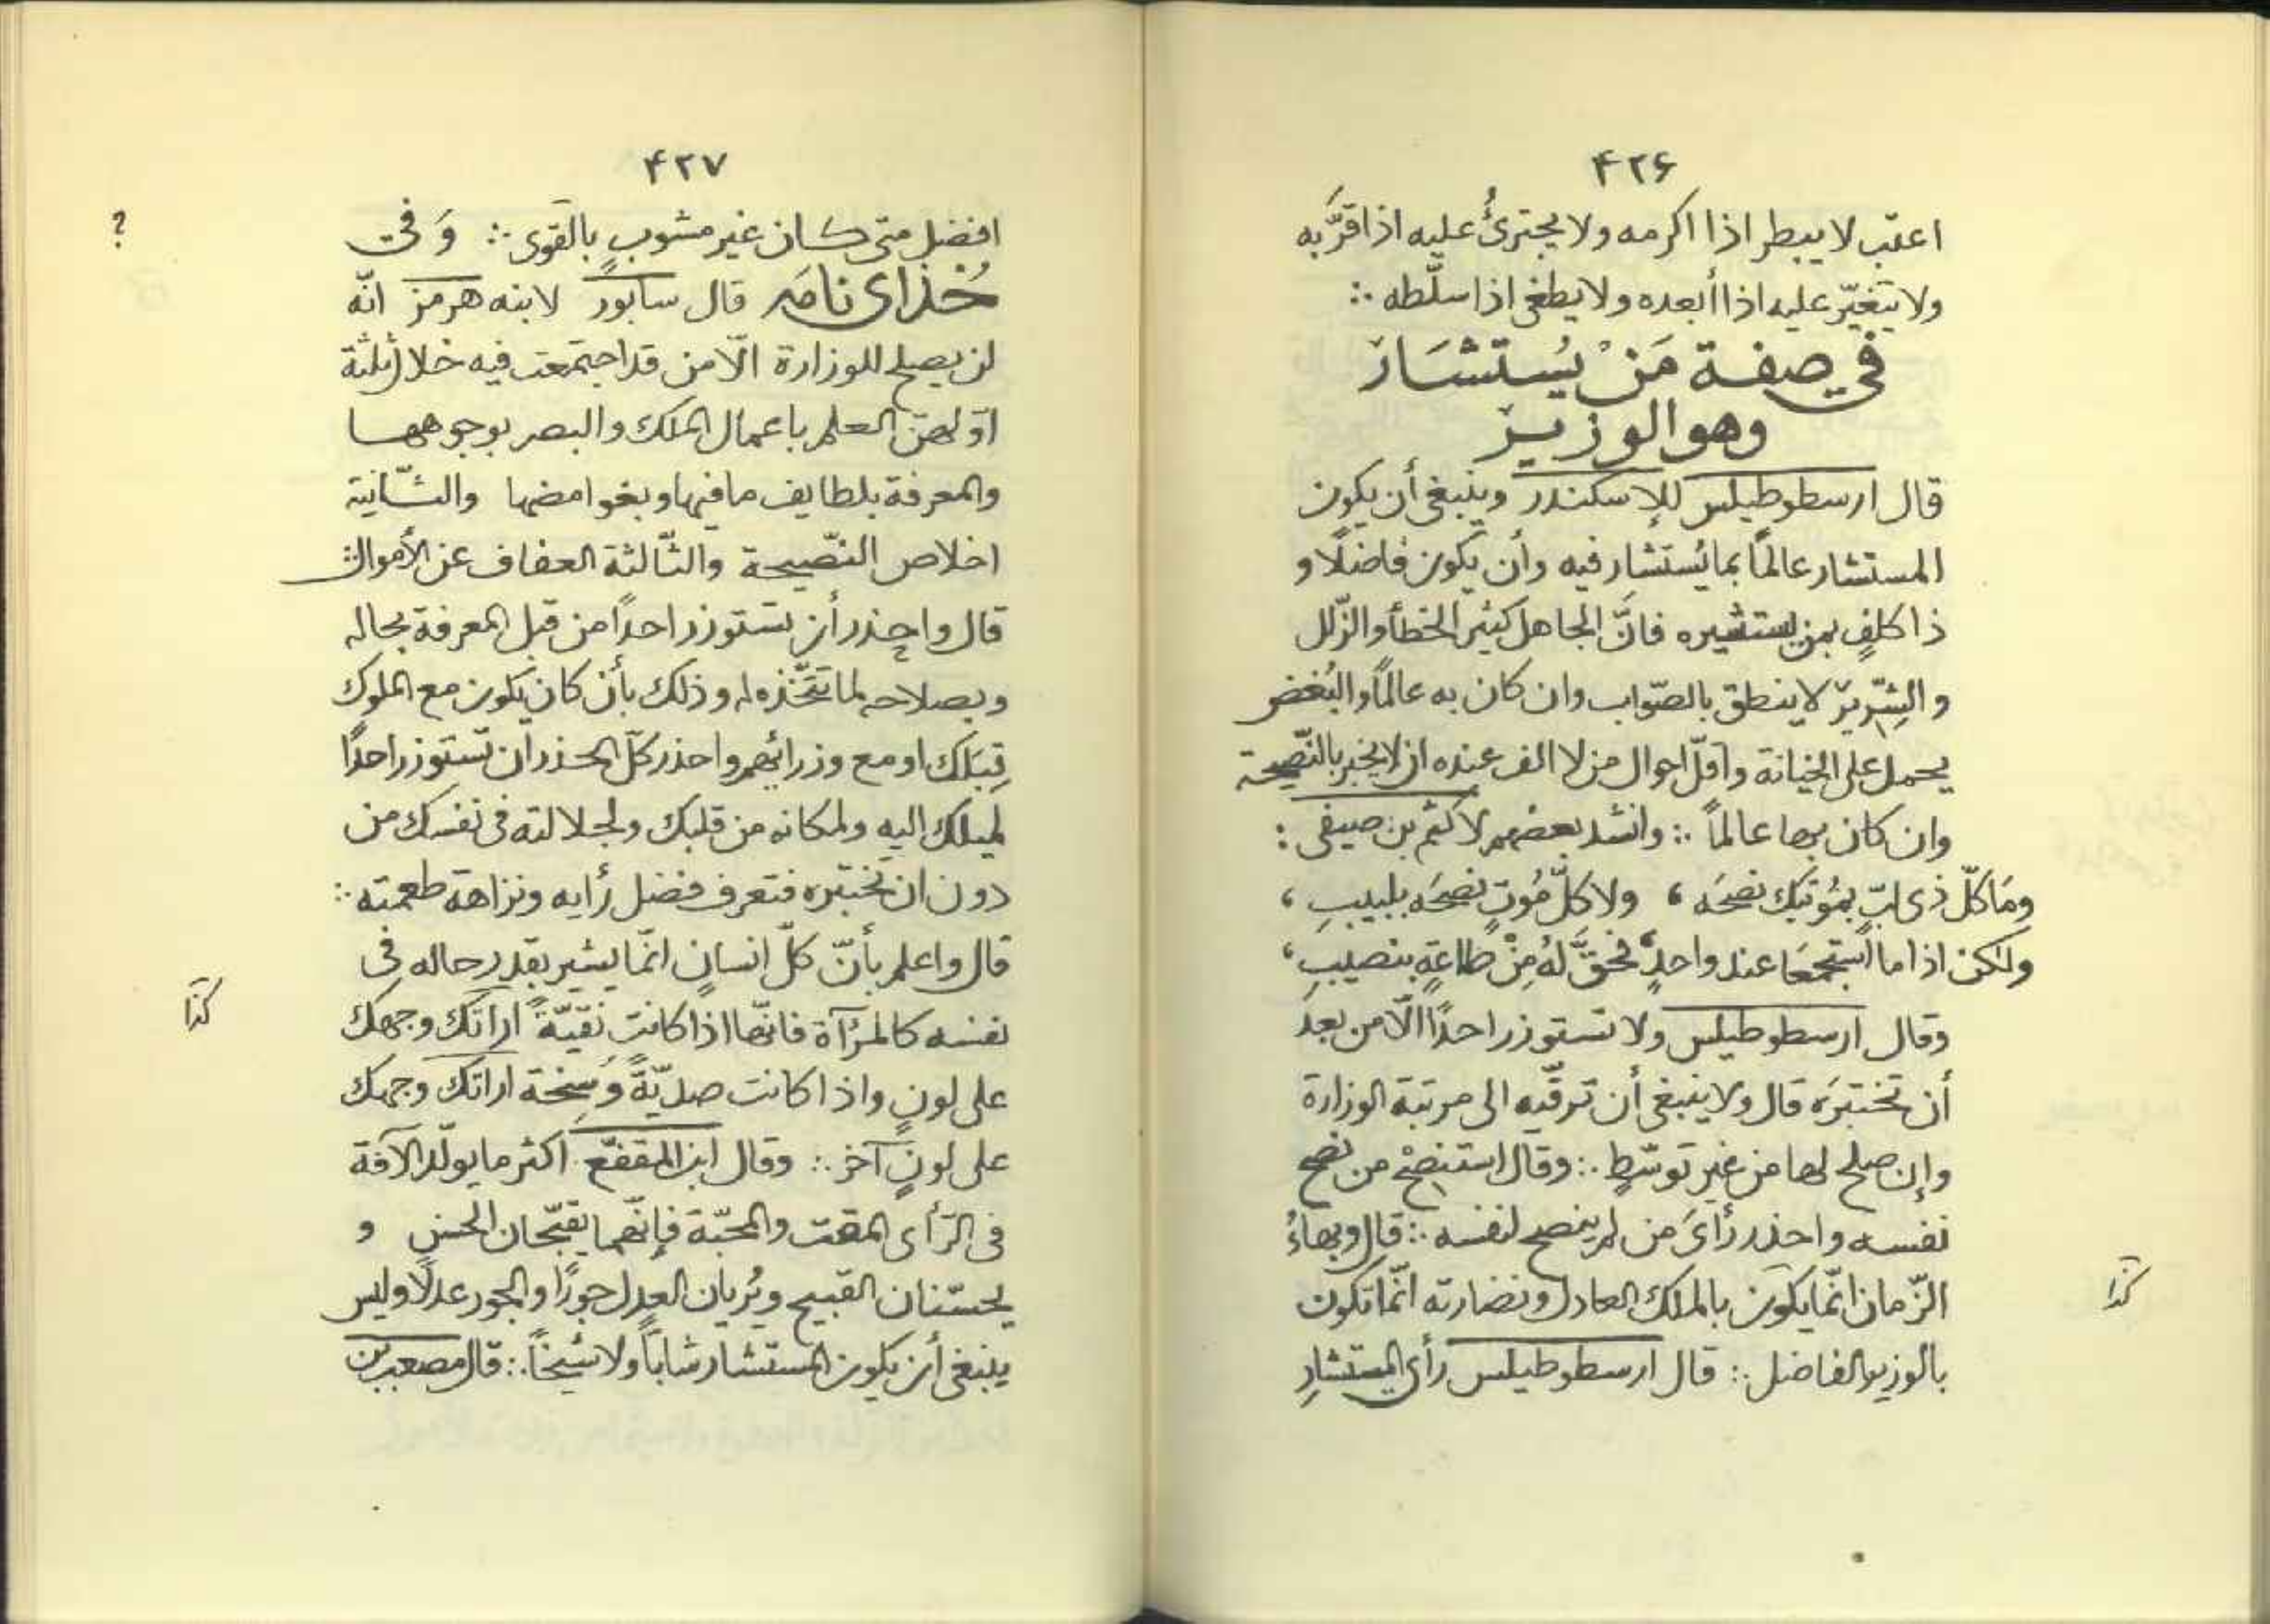 ۴۲۶
اعتب لا يبطر اذا اكرمه ولا يجترئُ عليه اذا قرَّبه
ولا يتغيّر عليه اذا أبعده ولا يطغى اذا سلّطه ∴
في صفة مَنْ يُستشَار
وهو الوزير
قال ارسطوطيلس للإسكندر وينبغى أن يكون
المستشار عالمًا بما يُستشار فيه وأن يكون فاضلًا و
ذا كلفٍ بمن يستشيره فانَّ الجاهل كثير الخطأ والزّلل
والشِّرّير لا ينطق بالصّواب وان كان به عالمًا والبُغض
يحمل على الخيانة وأقلّ احوال من لا الف عنده ان لا يخبر بالنّصيحة
وان كان بها عالماً ∴ وانشد بعضهم لاكثم بن صيفى :
ومَا كلّ ذى لبّ بمُؤتيك نصحَه ، ولا كلّ مُوتٍ نصحَه بلبيبِ ،
ولكن اذا ما استجمعَا عند واحدٍ ، فحقَّ لهُ مِنْ طاعةٍ بنصيبِ ،
وقال ارسطوطيلس ولا تستوزر احدًا الّا من بعد
أن تختبرَه قال ولا ينبغى أن ترقّيه الى مرتبة الوزارة
وإن صلح لها من غير توسّطٍ ∴ وقال استنصِحْ من نصح
نفسه واحذر رأىَ من لم ينصح لنفسه ∴ قال وبهاءُ
الزّمان انّما يكون بالملك العادل ونضارته انّما تكون
كذا
بالوزير الفاضل ∴ قال ارسطوطيلس رأى المستشارِ
۴۲۷
افضل متى كان غير مشوبٍ بالقوى ∴ وَفى
?
خُذاى نامَه قال سابور لابنه هرمز انّه
لن يصلح للوزارة الّا من قد اجتمعت فيه خلال ثلثة
اوّلهنّ العلم باعمال الملك والبصر بوجوهها
والمعرفة بلطايف ما فيها وبغوامضها والثّانية
اخلاص النّصيحة والثّالثة العفاف عن الأموال ∴
قال واحذر أن تستوزر احدًا من قبل المعرفة بحاله
وبصلاحه لما تتّخذه له وذلك بأن كان يكون مع الملوك
قِبَلك او مع وزرائهم واحذر كلّ الحذر ان تستوزر احدًا
لميلك اليه ولمكانه من قلبك ولجلالته فى نفسك من
دون ان تختبره فتعرف فضل رأيه ونزاهة طعمته ∴
قال واعلم بأنّ كلّ انسانٍ انّما يشير بقدر حاله فى
نفسه كالمرآة فانّها اذا كانت نقيّةً اراتك وجهك
كذا
على لونٍ واذا كانت صديّةً وَسِخة اراتك وجهك
على لونٍ آخر ∴ وقال ابن المقفّع اكثر ما يولّد الآفة
فى الرّأى المقت والمحبّة فإنّهما يقبّحان الحسن و
يحسّنان القبيح ويُريان العدل جورًا والجور عدلًا وليس
ينبغى أن يكون المستشار شاباً ولا شيخاً ∴ قال مصعب بن